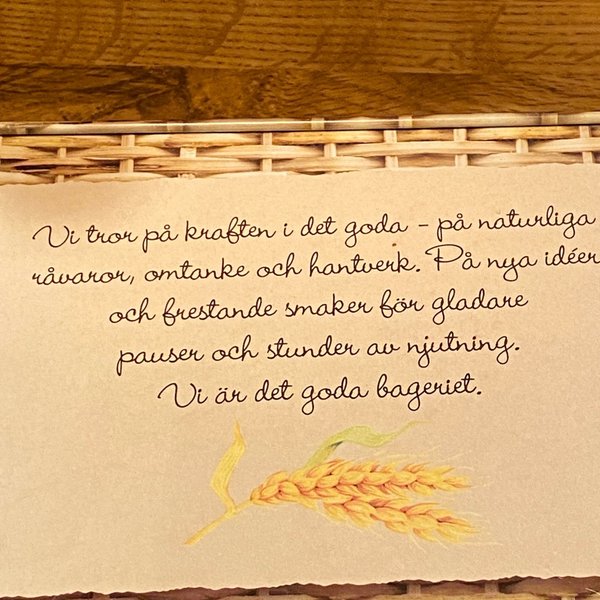 Vi tror på kraften i det goda - på naturliga
råvaror, omtanke och hantverk. På nya idéer
och frestande smaker för gladare
pauser och stunder av njutning.
Vi är det goda bageriet.